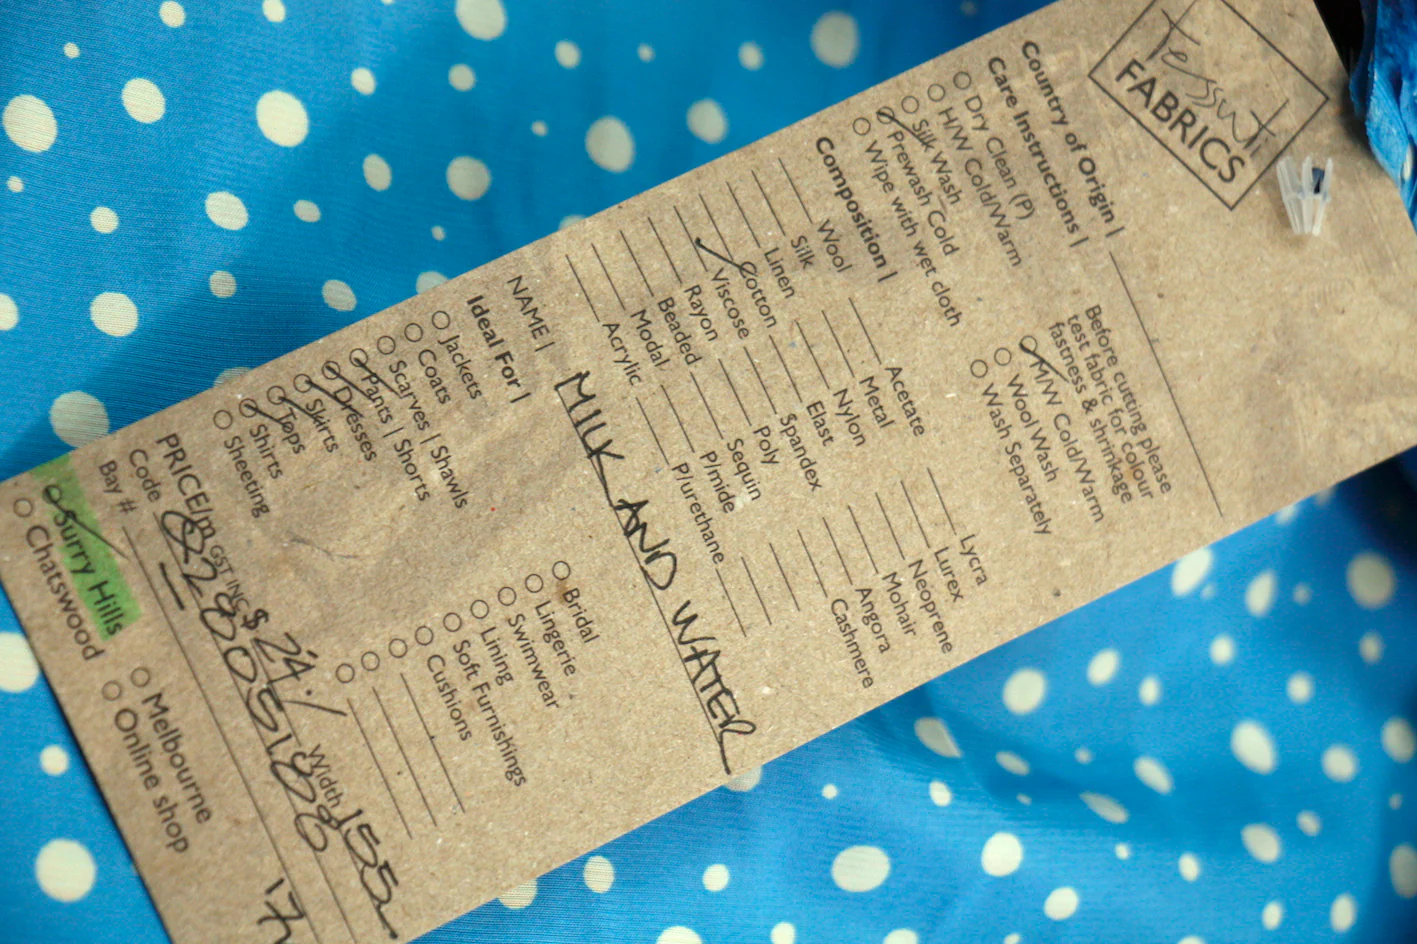 Tessuti
FABRICS
Country of Origin |
Care Instructions |
Dry Clean (P)
H/W Cold/Warm
Silk Wash
Prewash Cold
Wipe with wet cloth
Before cutting please
test fabric for colour
fastness & shrinkage
M/W Cold/Warm
Wool Wash
Wash Separately
Composition |
Wool
Silk
Linen
Cotton
Viscose
Rayon
Beaded
Modal
Acrylic
Acetate
Metal
Nylon
Elast
Spandex
Poly
Sequin
P/mide
P/urethane
Lycra
Lurex
Neoprene
Mohair
Angora
Cashmere
NAME | MILK AND WATER
Ideal For |
Jackets
Coats
Scarves | Shawls
Pants | Shorts
Dresses
Skirts
Tops
Shirts
Sheeting
Bridal
Lingerie
Swimwear
Lining
Soft Furnishings
Cushions
PRICE/m GST INC $ 24./ Width 155
Code
Bay #
Surry Hills
Chatswood
Melbourne
Online shop